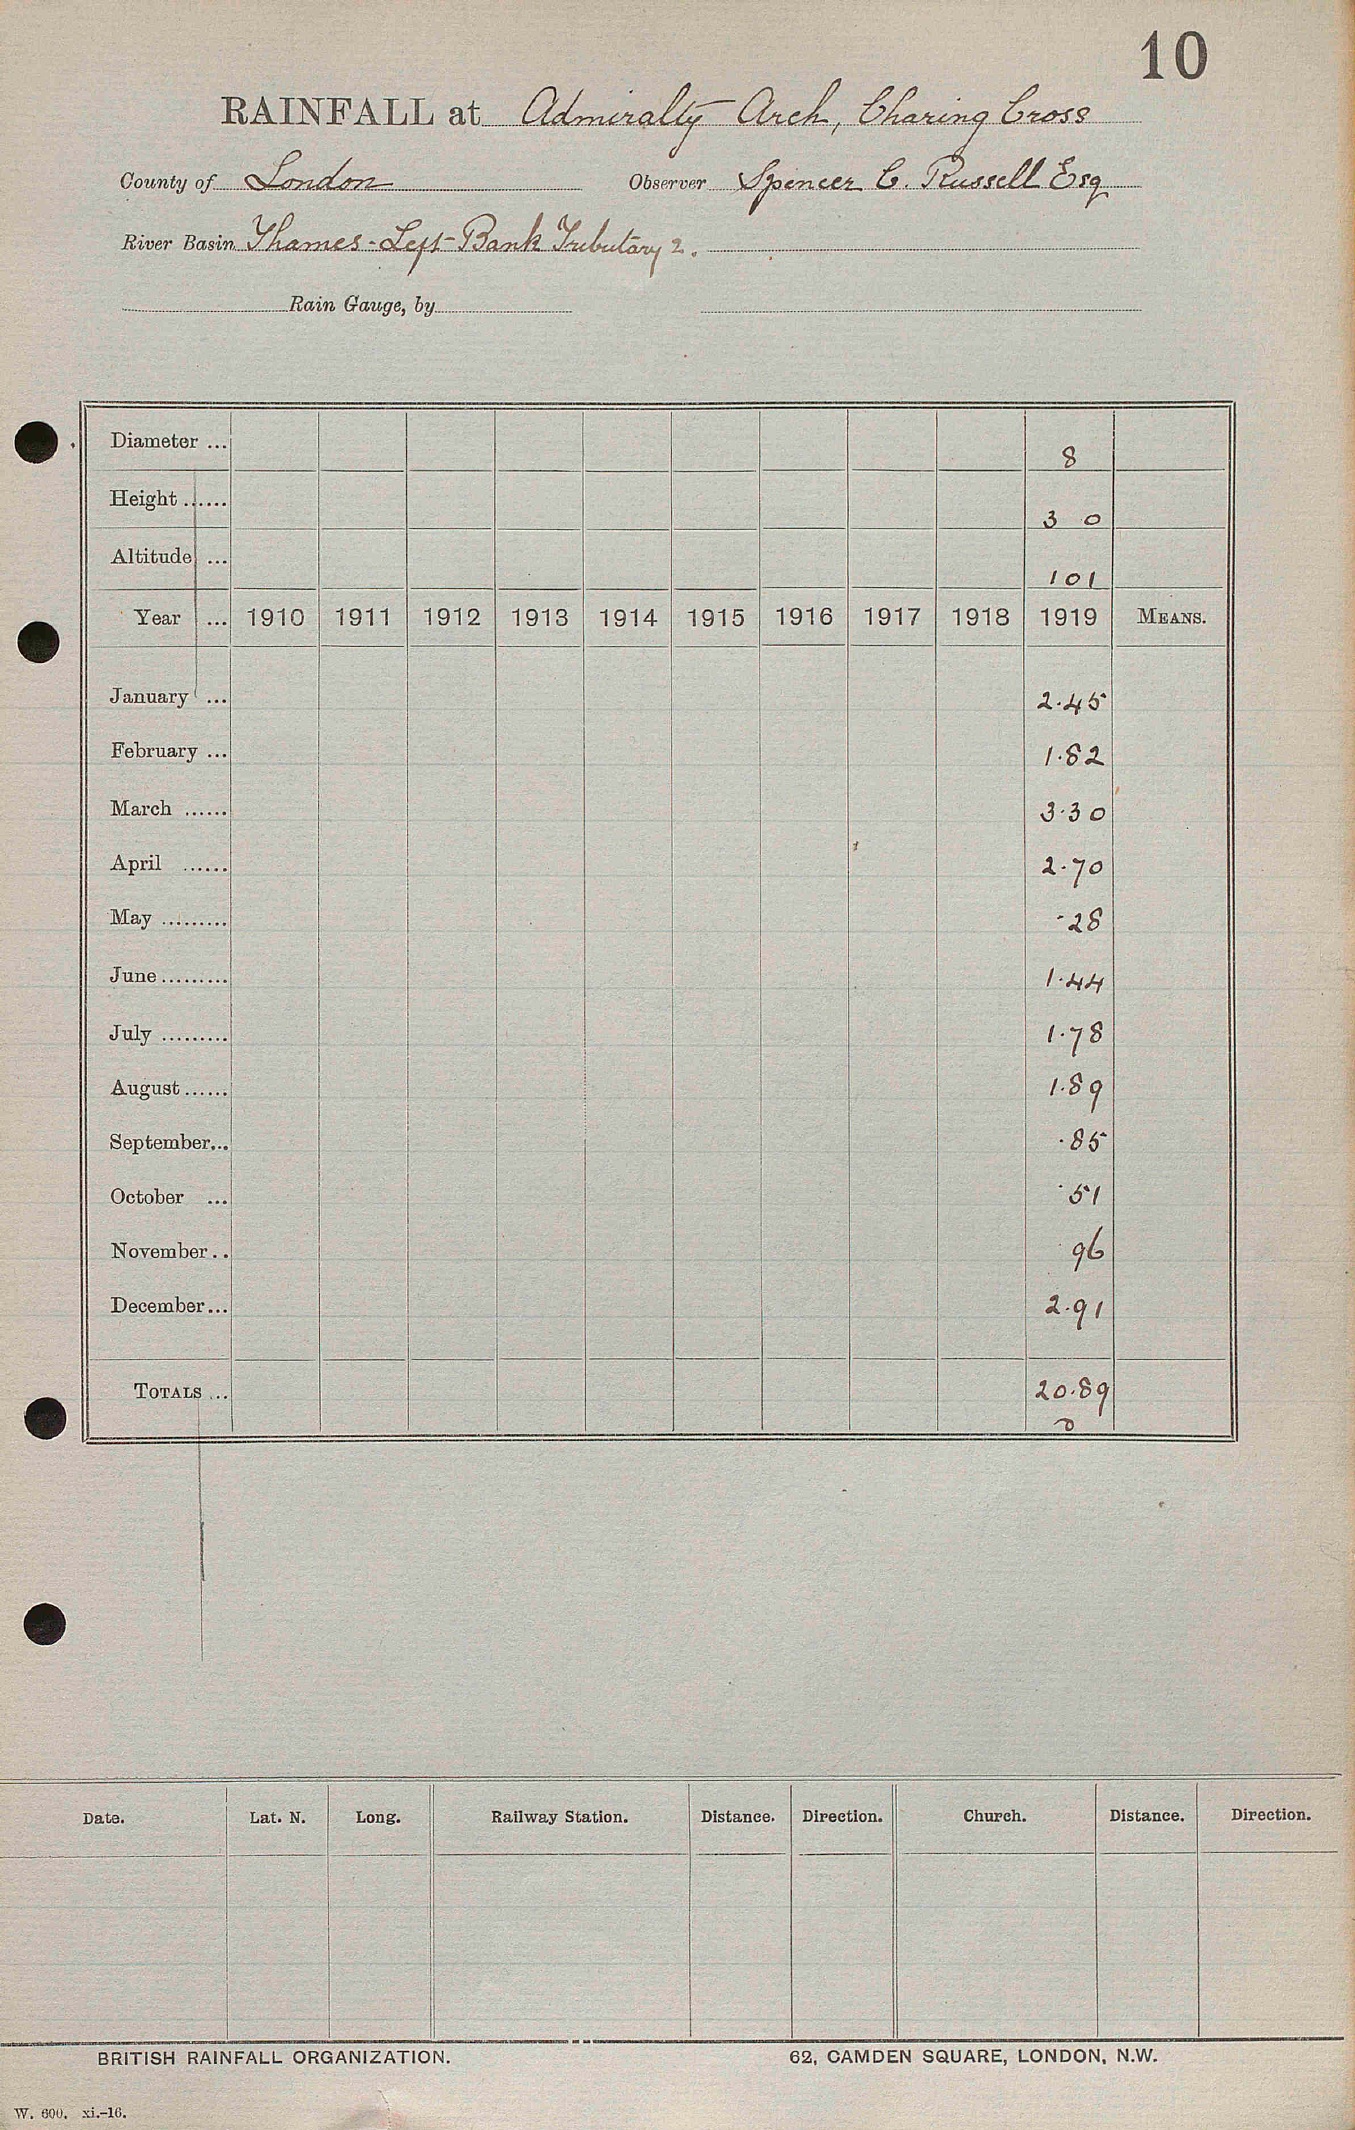 10
RAINFALL at Admiralty Arch, Charing Cross
County of London Observer Spencer C. Russell Esq
River Basin Thames-Left-Bank Tributary 2.
Rain Gauge, by
Diameter ... 8
Height ...... 3 0
Altitude ... 101
Year ... 1910 1911 1912 1913 1914 1915 1916 1917 1918 1919 MEANS.
January ... 2.45
February ... 1.82
March ...... 3.30
April ...... 2.70
May ......... .28
June ......... 1.44
July ......... 1.78
August ...... 1.89
September... .85
October ... .51
November .. 96
December... 2.91
TOTALS ... 20.89
Date. Lat. N. Long. Railway Station. Distance. Direction. Church. Distance. Direction.
BRITISH RAINFALL ORGANIZATION. 62, CAMDEN SQUARE, LONDON, N.W.
W. 600. xi.-16.